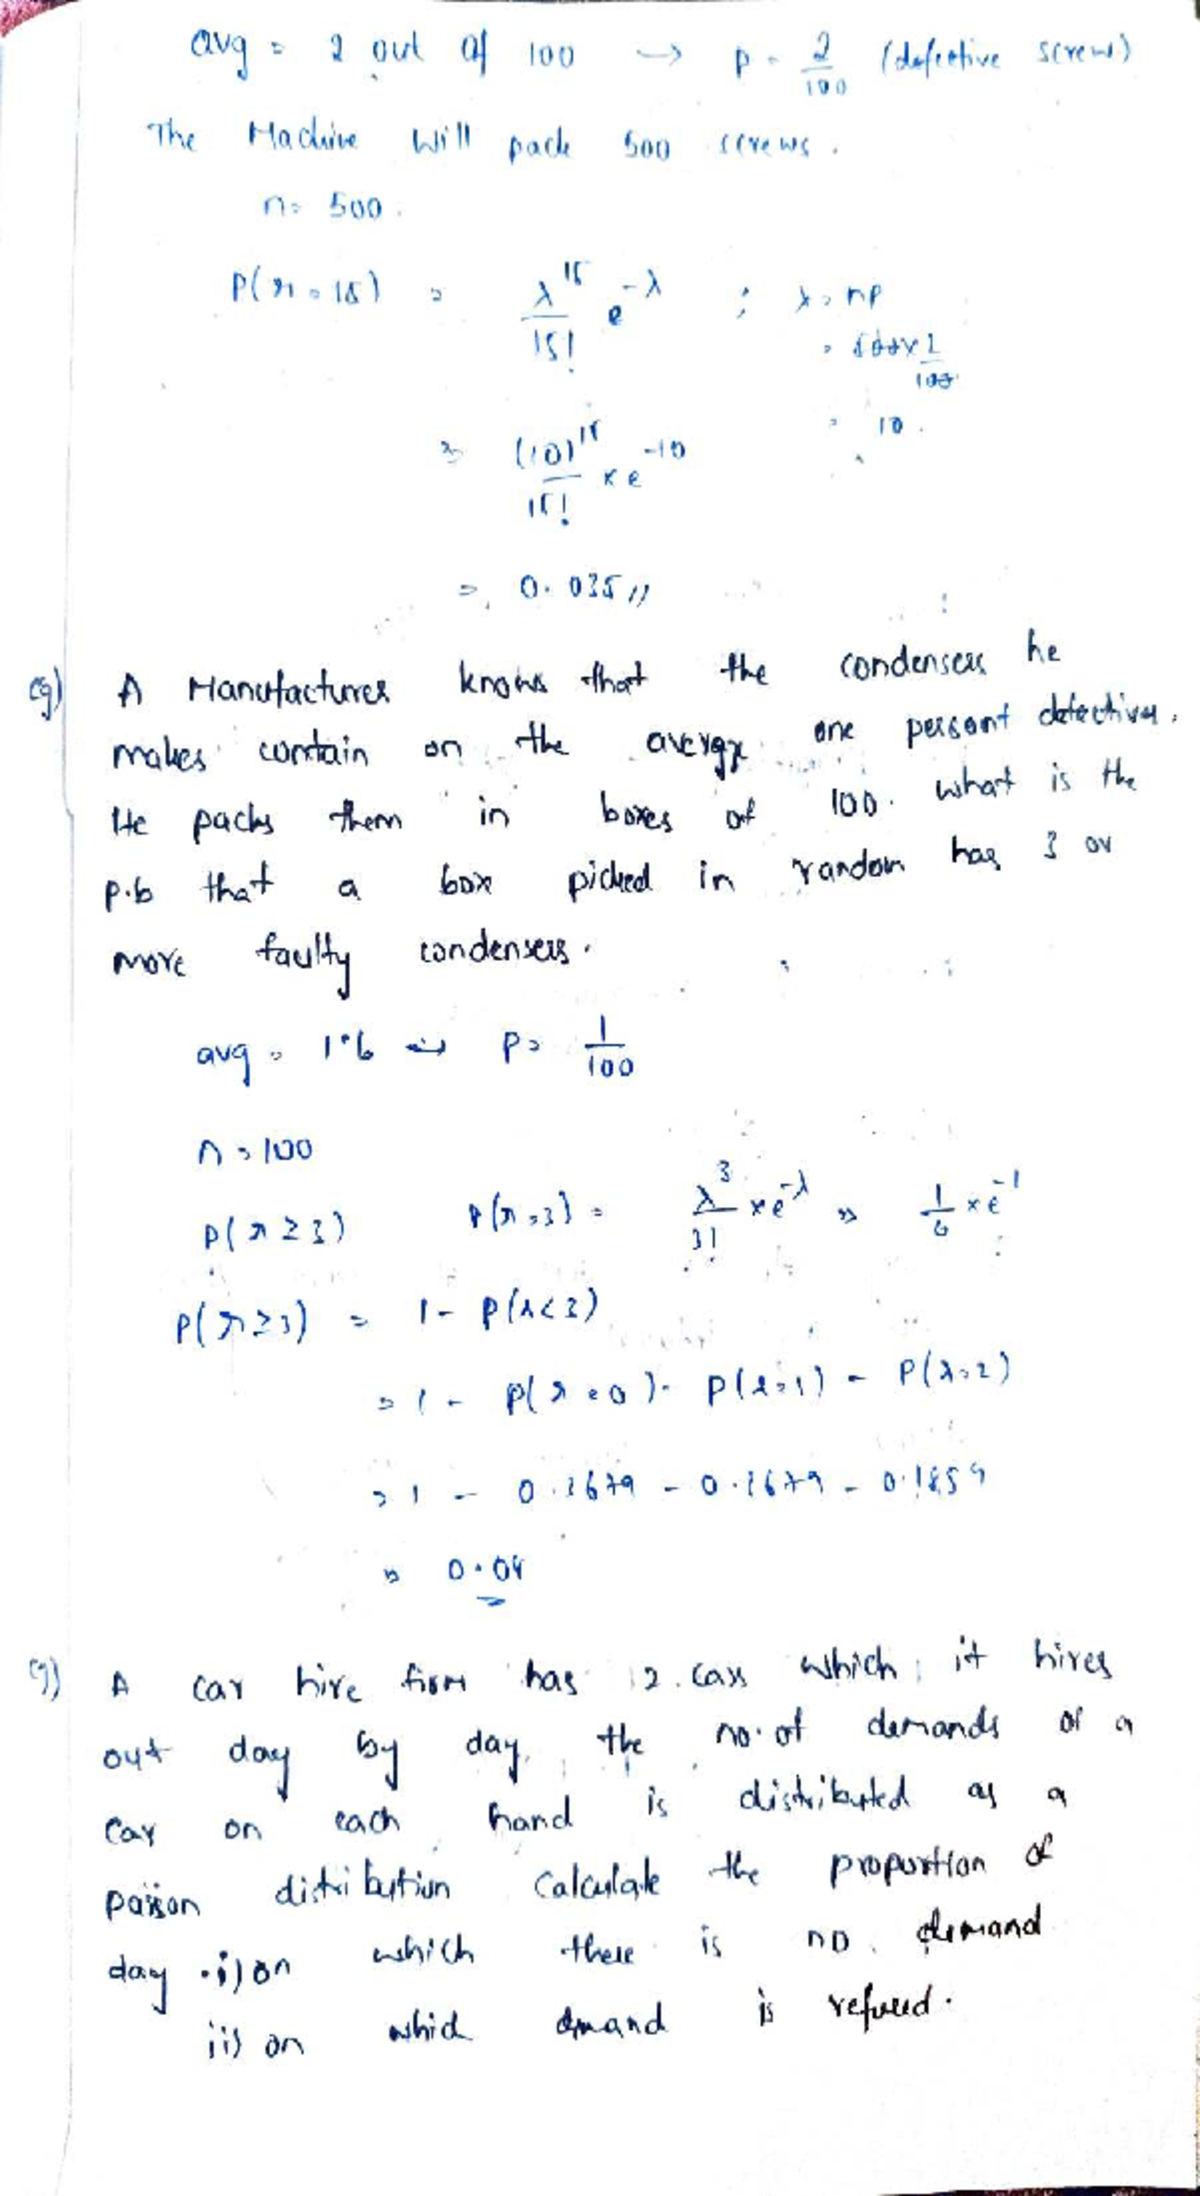 avg = 2 out of 100 → p = 2/100 (defective screws)
The Machine will pack 500 screws.
n = 500.
P(x = 15) = λ^15/15! e^-λ ; λ = np
= 500 × 2/100
= 10.
= (10)^15/15! × e^-10
= 0.035 //
eg) A Manufacturer knows that the condensers he
makes contain on the average one persont defectives.
He packs them in boxes of 100. what is the
p.b that a box picked in random has 3 or
more faulty condensers.
avg = 1% → p = 1/100
n = 100
P(x ≥ 3) P(x = 3) = λ^3/3! × e^-λ = 1/6 × e^-1
P(x ≥ 3) = 1 - P(x < 3)
= 1 - P(x = 0) - P(x = 1) - P(x = 2)
= 1 - 0.3679 - 0.3679 - 0.1859
= 0.08
eg) A car hire firm has 2 cars which it hires
out day by day, the no. of demands of a
car on each hand is distributed as a
poisson distribution calculate the proportion of
day i) on which there is no demand
ii) on which dmand is refused.